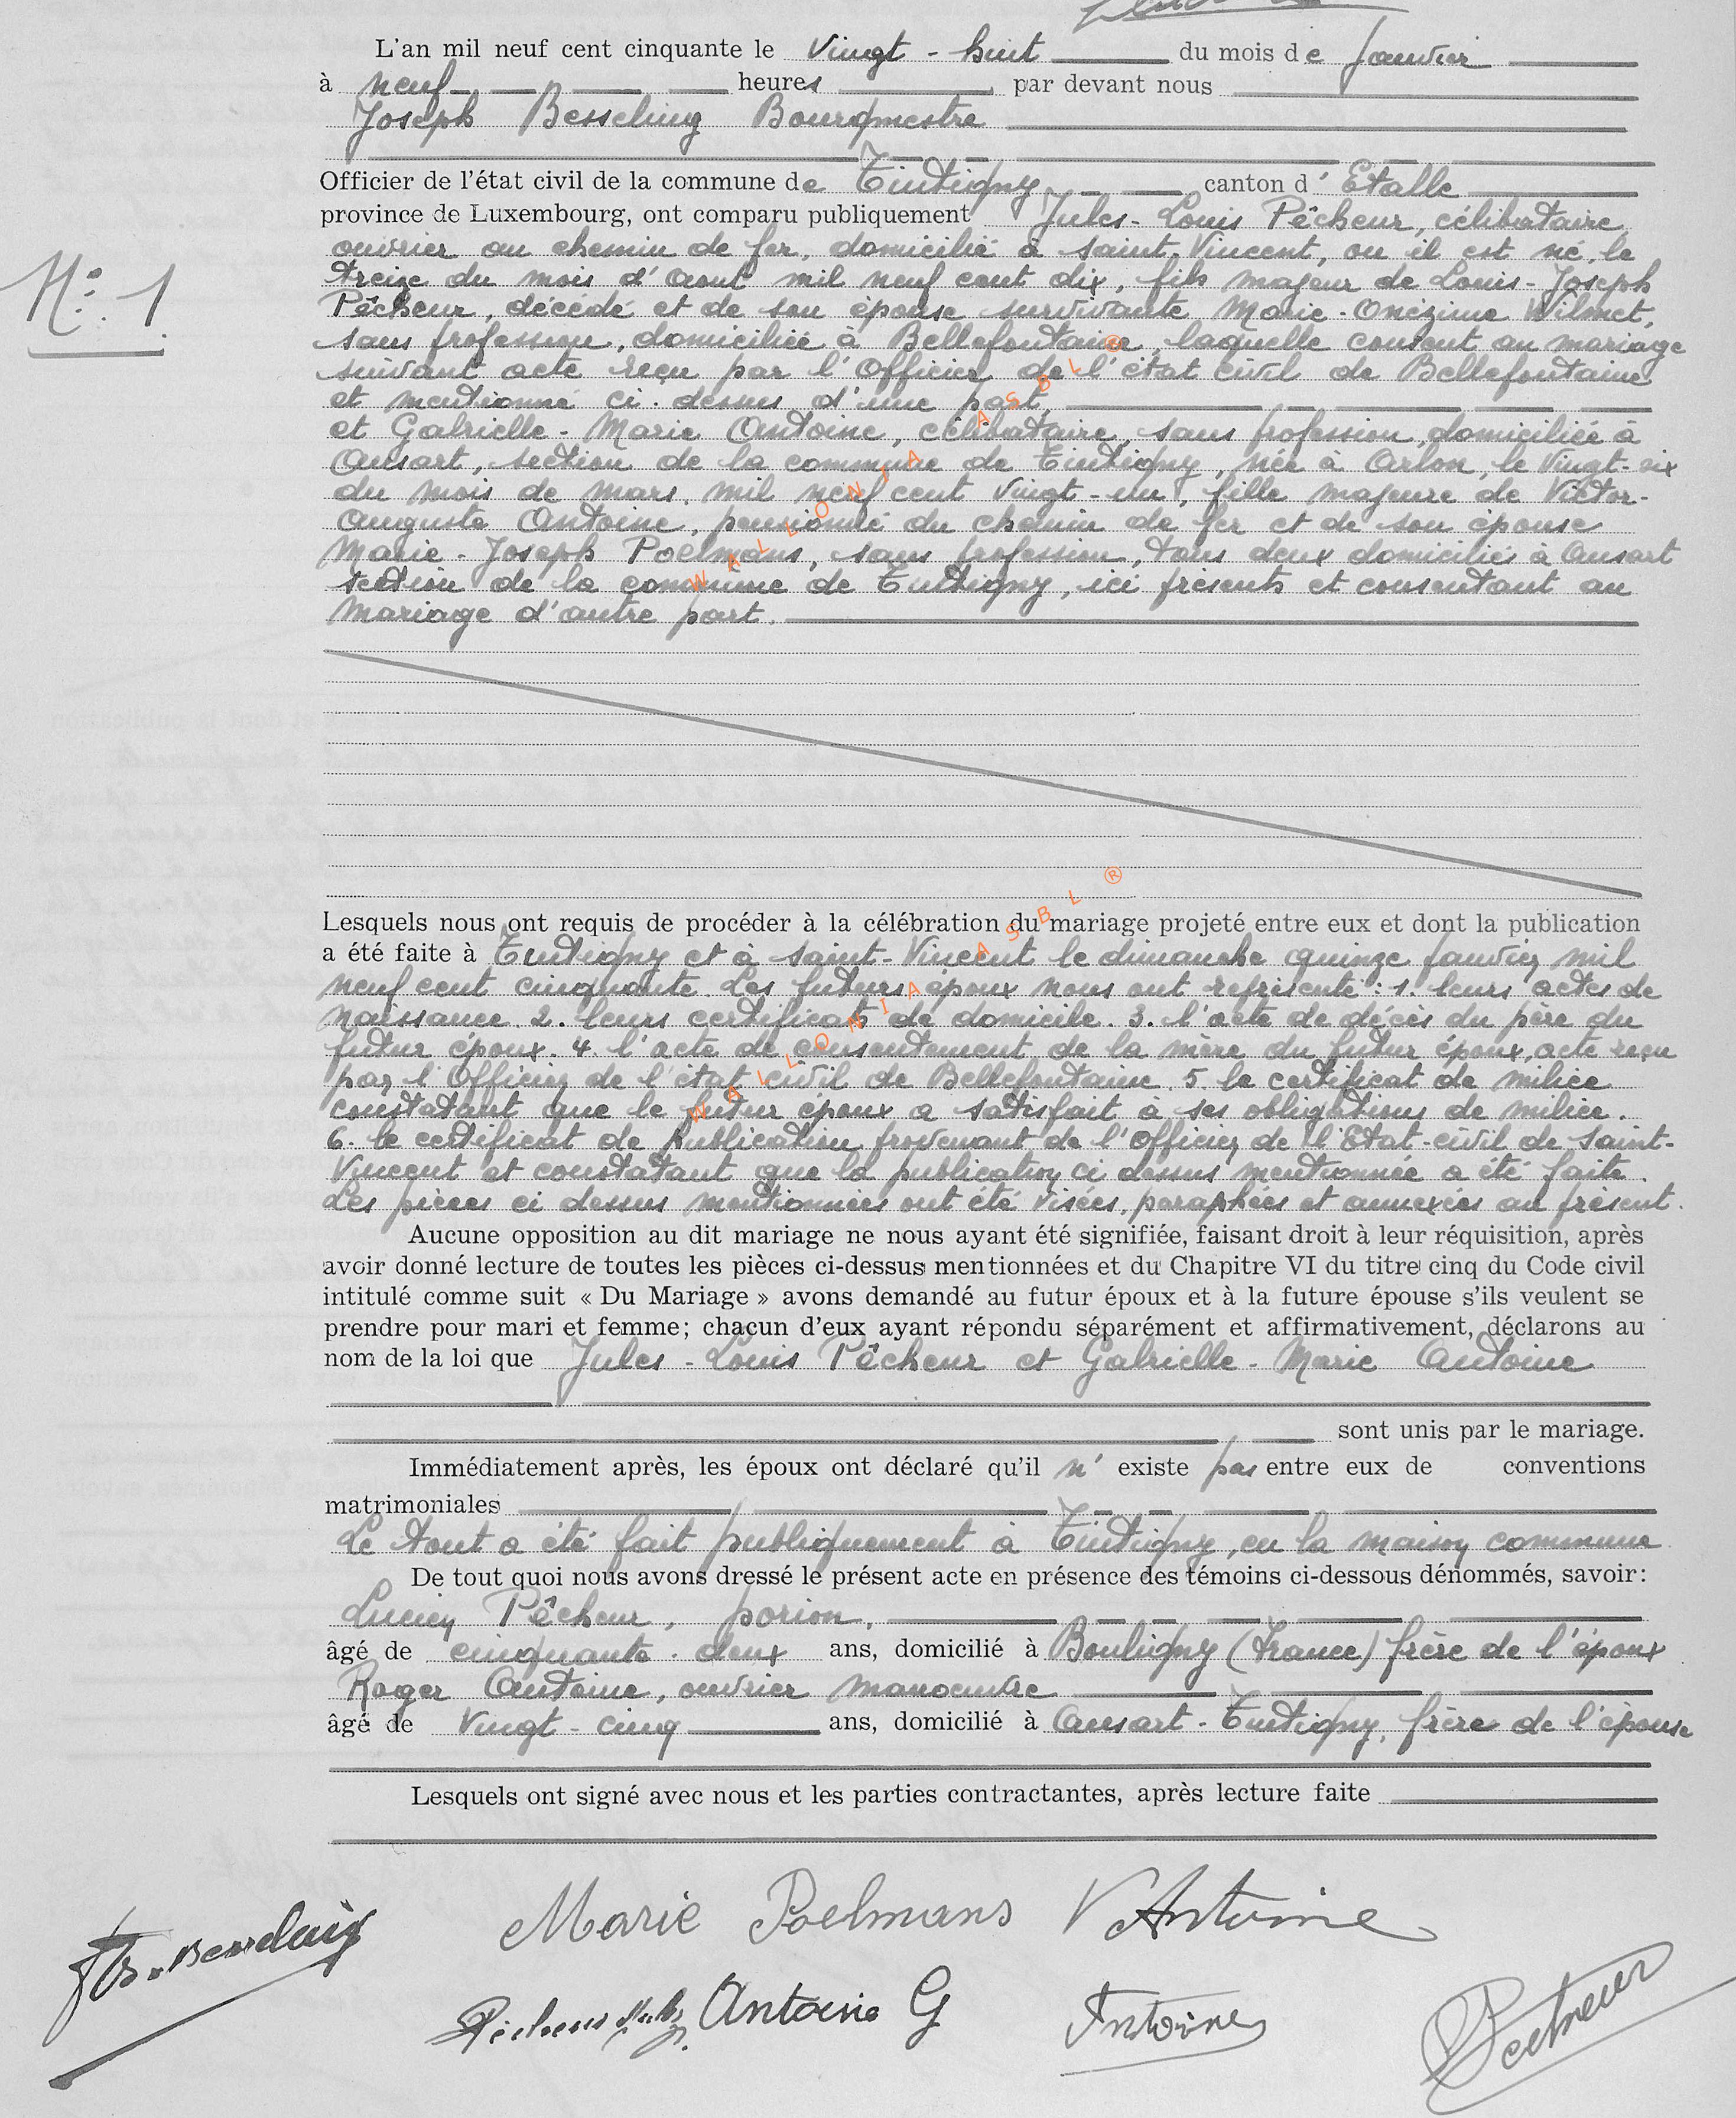 L'an mil neuf cent cinquante le vingt - huit du mois de Janvier
à neuf heures par devant nous
Joseph Besseling Bourgmestre
Officier de l'état civil de la commune de Tintigny canton d' Etalle
province de Luxembourg, ont comparu publiquement Jules - Louis Pêcheur, célibataire
ouvrier au chemin de fer, domicilié à Saint-Vincent, ou il est né, le
treize du mois d'Aout mil neuf cent dix, fils majeur de Louis - Joseph
N°. 1
Pêcheur, décédé et de son épouse survivante Marie - Onézime Wilmet,
sans profession, domiciliée à Bellefontaine, laquelle consent au mariage
suivant acte reçu par l'Officier de l'état civil de Bellefontaine
et mentionné ci - dessus d'une part,
et Gabrielle - Marie Antoine, célibataire, sans profession, domiciliée à
Ansart, section de la commune de Tintigny, née à Arlon, le vingt-six
du mois de mars mil neuf cent vingt - un, fille majeure de Victor -
Auguste Antoine, pensionné du chemin de fer et de son épouse
Marie - Joseph Poelmans, sans profession, tous deux domiciliés à Ansart
section de la commune de Tintigny, ici présents et consentant au
mariage d'autre part.
WALLONIA ASBL ®
Lesquels nous ont requis de procéder à la célébration du mariage projeté entre eux et dont la publication
a été faite à Tintigny et à Saint-Vincent le dimanche quinze Janvier mil
neuf cent cinquante. Les futurs époux nous ont représenté : 1. leurs actes de
naissance. 2. leurs certificats de domicile. 3. l'acte de décès du père du
futur époux. 4. l'acte de consentement de la mère du futur époux, acte reçu
par l'Officier de l'état civil de Bellefontaine. 5. le certificat de milice
constatant que le futur époux a satisfait à ses obligations de milice.
6. le certificat de publication provenant de l'Officier de l'Etat-civil de Saint-
Vincent et constatant que la publication ci dessus mentionnée a été faite.
Les pièces ci dessus mentionnées ont été visées, paraphées et annexées au présent.
WALLONIA ASBL ®
Aucune opposition au dit mariage ne nous ayant été signifiée, faisant droit à leur réquisition, après
avoir donné lecture de toutes les pièces ci-dessus mentionnées et du Chapitre VI du titre cinq du Code civil
intitulé comme suit « Du Mariage » avons demandé au futur époux et à la future épouse s'ils veulent se
prendre pour mari et femme; chacun d'eux ayant répondu séparément et affirmativement, déclarons au
nom de la loi que Jules - Louis Pêcheur et Gabrielle - Marie Antoine
sont unis par le mariage.
Immédiatement après, les époux ont déclaré qu'il n' existe pas entre eux de conventions
matrimoniales
Le tout a été fait publiquement à Tintigny, en la maison commune
De tout quoi nous avons dressé le présent acte en présence des témoins ci-dessous dénommés, savoir:
Lucien Pêcheur, porion,
âgé de cinquante - deux ans, domicilié à Bouligny (France) frère de l'époux
Roger Antoine, ouvrier manoeuvre
âgé de vingt - cinq ans, domicilié à Ansart - Tintigny, frère de l'épouse
Lesquels ont signé avec nous et les parties contractantes, après lecture faite
Marie Poelmans V Antoine
Pêcheur Jules Antoine G Antoine Pecheur